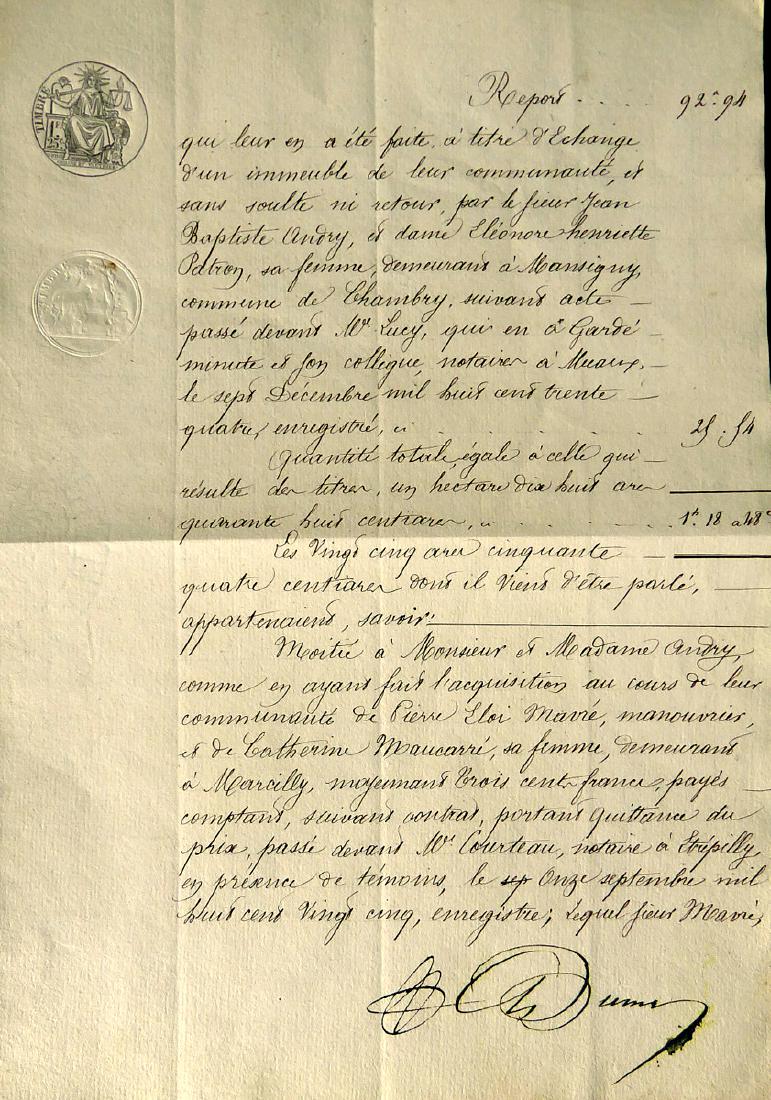 TIMBRE
1F
25c
Report . . . . 92a 94
qui leur en a été faite, à titre d'Echange
d'un immeuble de leur communauté, et
sans soulte ni retour, par le sieur Jean
Baptiste Andry, et dame Eléonore henriette
Patron, sa femme, demeurant à Mansigny,
commune de Chambry, suivant acte —
passé devant Me Lucy, qui en a Gardé —
minute et son collègue, notaires à Meaux, —
le sept Décembre mil huit cent trente —
quatre, enregistré, ci . . . . . . 25 . 54
Quantité totale, égale à celle qui —
résulte des titres, un hectare dix huit ares
quarante huit centiares, ci . . . . . . 1h 18a 48c
Les Vingt cinq ares cinquante —
quatre centiares dont il Vient d'être parlé, —
appartenaient, savoir:
Moitié à Monsieur et Madame Andry,
comme en ayant fait l'acquisition au cours de leur
communauté de Pierre Eloi Mavré, manouvrier,
et de Catherine Maucarré, sa femme, demeurant
à Marcilly, moyennant Trois cents francs, payés —
comptant, suivant contrat, portant quittance du
prix, passé devant Me Courteau, notaire à Etrépilly
en présence de témoins, le sep Onze septembre mil
huit cent Vingt cinq, enregistré; Lequel sieur Mavré,